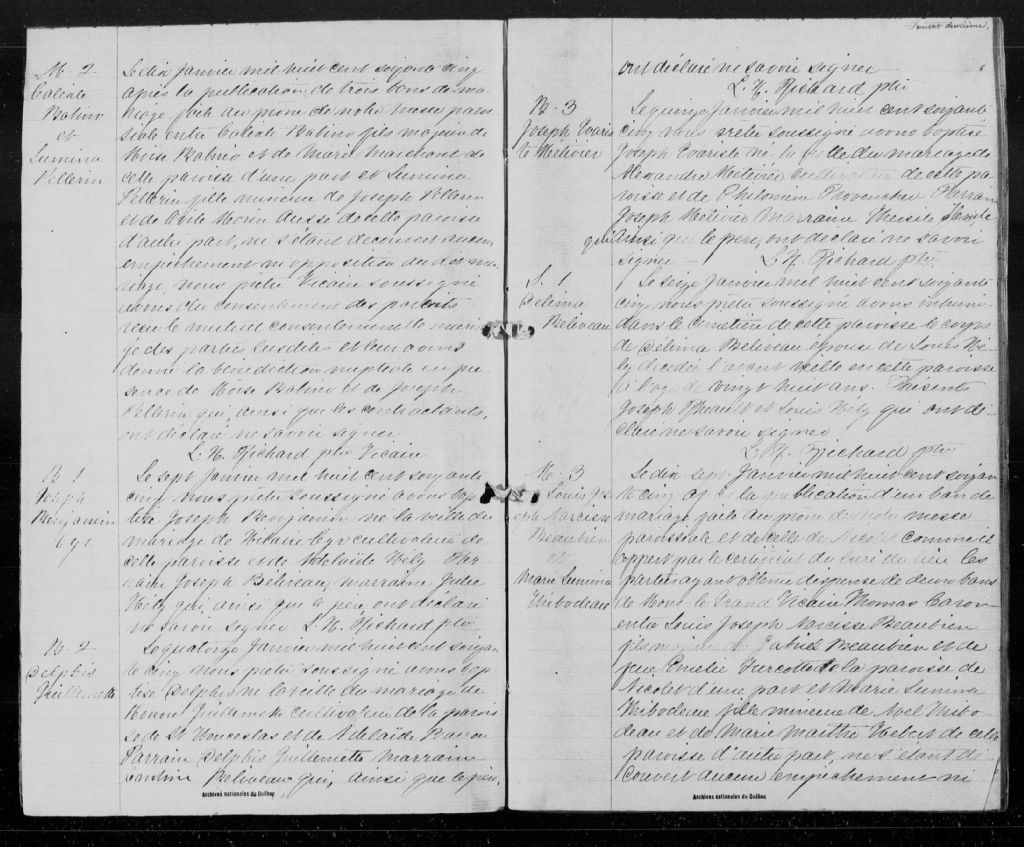 M-2
Calixte
Babino
et
Lumina
Pellerin
Le dix Janvier mil huit cent soixante cinq
après la publication de trois bans de ma-
riage faite au prone de notre messe parois
siale entre Calixte Babino fils majeur de
Moïse Babino et de Marie Marchant de
cette paroisse d'une part et Lumina
Pellerin fille mineure de Joseph Pellerin
et de Odile Morin aussi de cette paroisse
d'autre part, ne s'étant découvert aucun
empêchement ni opposition au dit ma-
riage, nous prêtre Vicaire soussigné
avons du consentement des parents
reçu le mutuel consentement de maria
ge des parties susdites et leur avons
donné la bénédiction nuptiale en pre
sence de Moïse Babino et de Joseph
Pellerin qui, ainsi que les contractants,
ont déclaré ne savoir signer
L. H. Richard ptre Vicaire
B 1
Joseph
Benjamin
Cyr
Le sept Janvier mil huit cent soixante
cinq nous prêtre soussigné avons bap
tisé Joseph Benjamin né la veille du
mariage de Cyr cultivateur de
cette paroisse et de Adelaïde Hély Par
rain Joseph Beliveau, marraine Julie
Hély qui, ainsi que le père, ont déclaré
ne savoir signer L. H. Richard ptre
B-2
Delphis
Guillemette
Le quatorze Janvier mil huit cent soixan
te cinq nous prêtre soussigné avons bap
tisé Delphis né la veille du mariage de
Honoré Guillemette cultivateur de la parois
se de St Wenceslas et de Adelaïde
Parrain Delphis Guillemette marraine
Beliveau qui, ainsi que le père,
Archives nationales du Québec
Feuillet deuxième.
ont déclaré ne savoir signer
L. H. Richard ptre
B-3
Joseph Evaris
te Metivier
Le quinze Janvier mil huit cent soixante
cinq nous prêtre soussigné avons baptisé
Joseph Evariste né la veille du mariage de
Alexandre Metivier cultivateur de cette pa
roisse et de Philomène Provencher Parrain
Joseph Metivier Marraine
qui ainsi que le père, ont déclaré ne savoir
signer — L. H. Richard ptre
S. 1
Délima
Beliveau
Le seize Janvier mil huit cent soixante
cinq nous prêtre soussigné avons inhumé
dans le cimetière de cette paroisse le corps
de Délima Beliveau épouse de Louis Hé-
ly décédée l'avant veille en cette paroisse
à l'age de vingt huit ans. Présents
Joseph Theault et Louis Hély qui ont dé-
claré ne savoir signer
L. H. Richard ptre
M-3
Louis Jos
eph Narcisse
Beaubien
et
Marie Lumina
Thibodeau
Le dix sept Janvier mil huit cent soixan
te cinq après la publication d'un ban de
mariage faite au prone de notre messe
paroissiale et de celle de Nicolet comme il
appert par le certificat du curé du lieu les
parties ayant obtenu dispense de deux bans
de Mons. le Grand Vicaire Thomas Caron
entre Louis Joseph Narcisse Beaubien
fils majeur de Gabriel Beaubien et de
feue Emelie Turcotte de la paroisse de
Nicolet d'une part et Marie Lumina
Thibodeau fille mineure de Noel Thibo
deau et de Marie Marthe Hebert de cette
paroisse d'autre part, ne s'étant dé
couvert aucun empêchement ni
Archives nationales du Québec